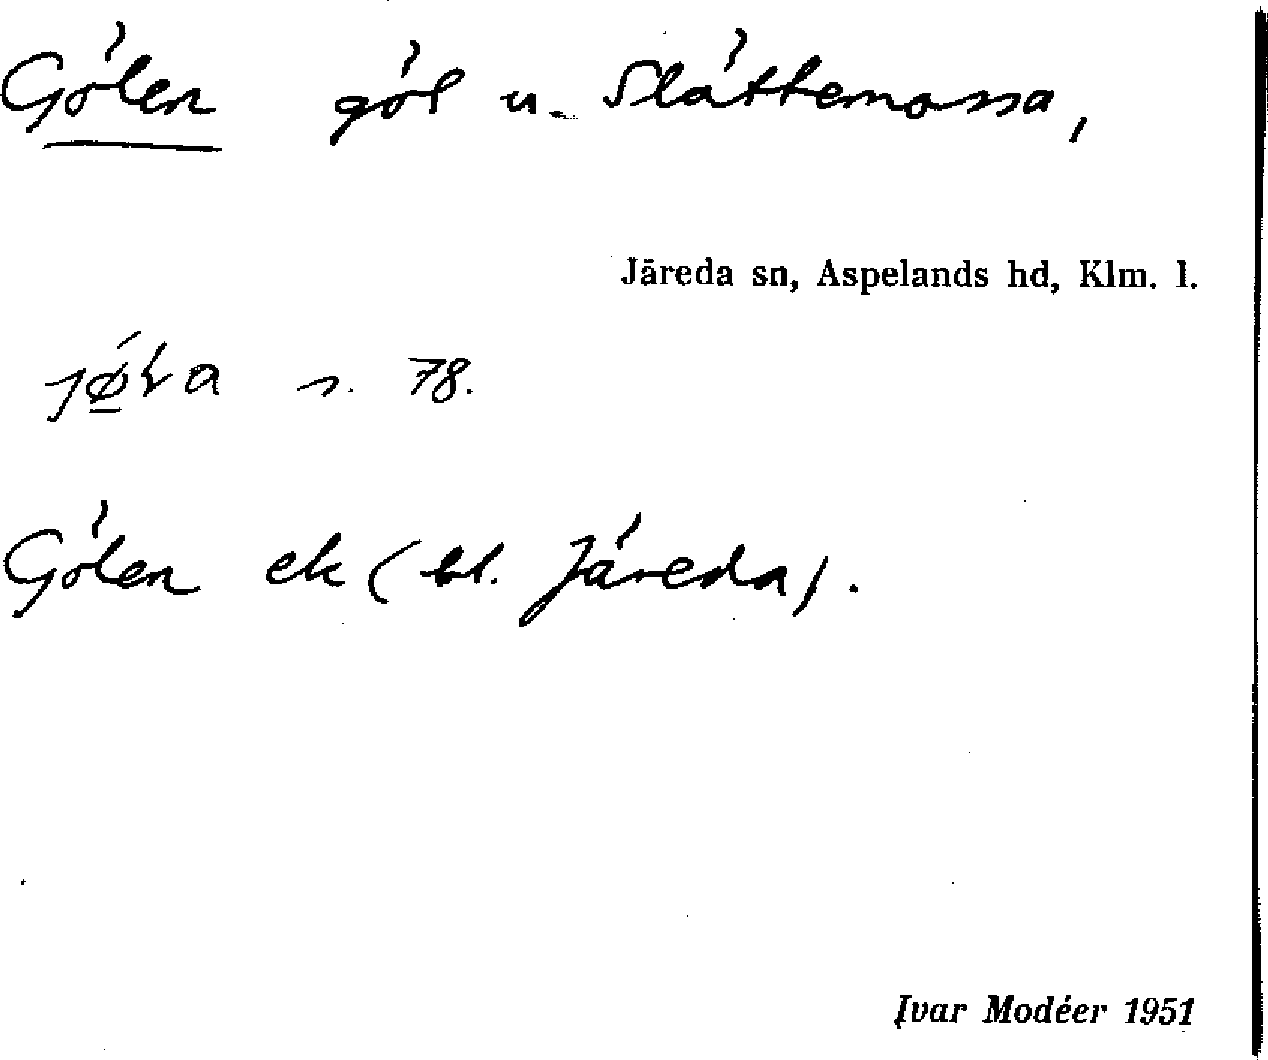 Gölen göl u. Slättemossa,
Järeda sn, Aspelands hd, Klm. l.
s. 78.
Gölen ek (bl. Järeda).
Ivar Modéer 1951